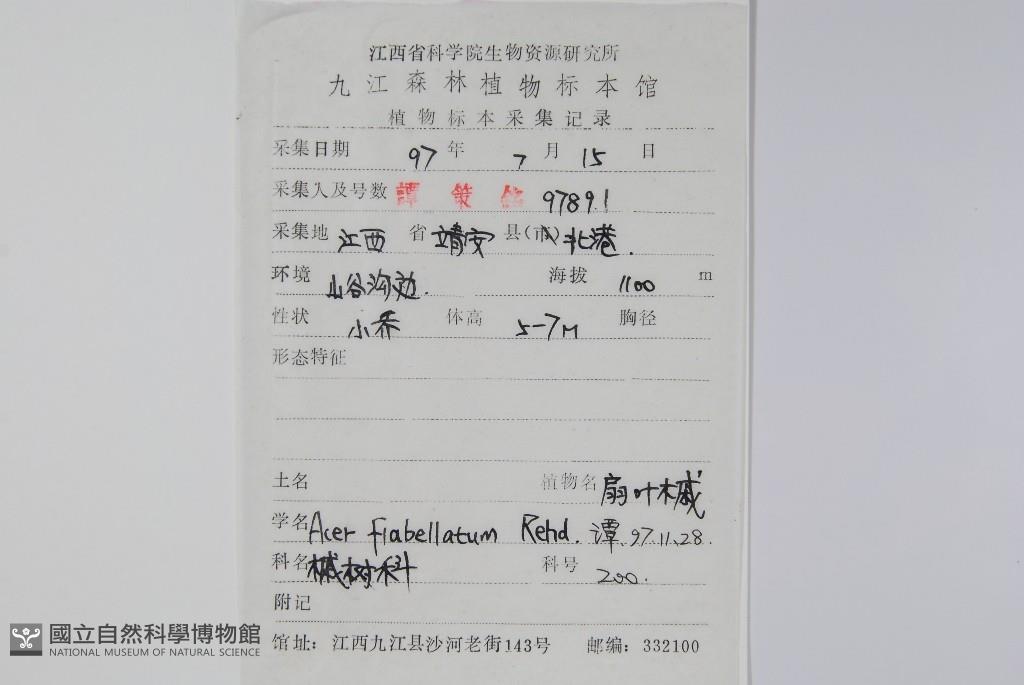 江西省科学院生物资源研究所
九江森林植物标本馆
植物标本采集记录
采集日期 97 年 7 月 15 日
采集人及号数 譚 策 97891
采集地 江西 省 靖安 县(市) 北港.
环境 山谷沟边. 海拔 1100 m
性状 小乔 体高 5-7M 胸径
形态特征
土名 植物名 扇叶槭
学名 Acer flabellatum Rehd. 譚.97.11.28.
科名 槭树科 科号 200.
附记
馆址: 江西九江县沙河老街143号 邮编: 332100
國立自然科學博物館
NATIONAL MUSEUM OF NATURAL SCIENCE